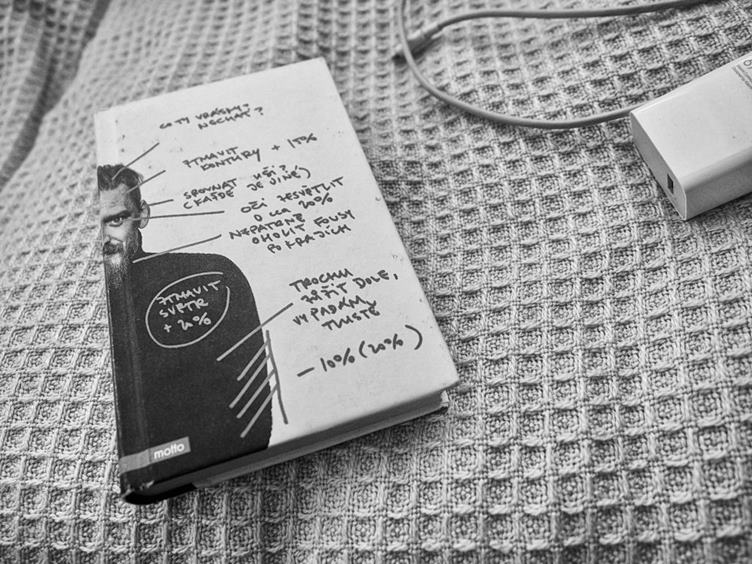 CO TY VRÁSKY?
NECHAT?
ZTMAVIT
KONTURY + 15%
SROVNAT UŠI?
(KAŽDÉ JE JINÉ)
OČI ZESVĚTLIT
O CCA 20%
NEPATRNĚ
OHOLIT FOUSY
PO KRAJÍCH
ZTMAVIT
SVETR
+ 20%
TROCHU
ZÚŽIT DOLE,
VYPADÁM
TLUSTĚ
– 10% (20%)
motto